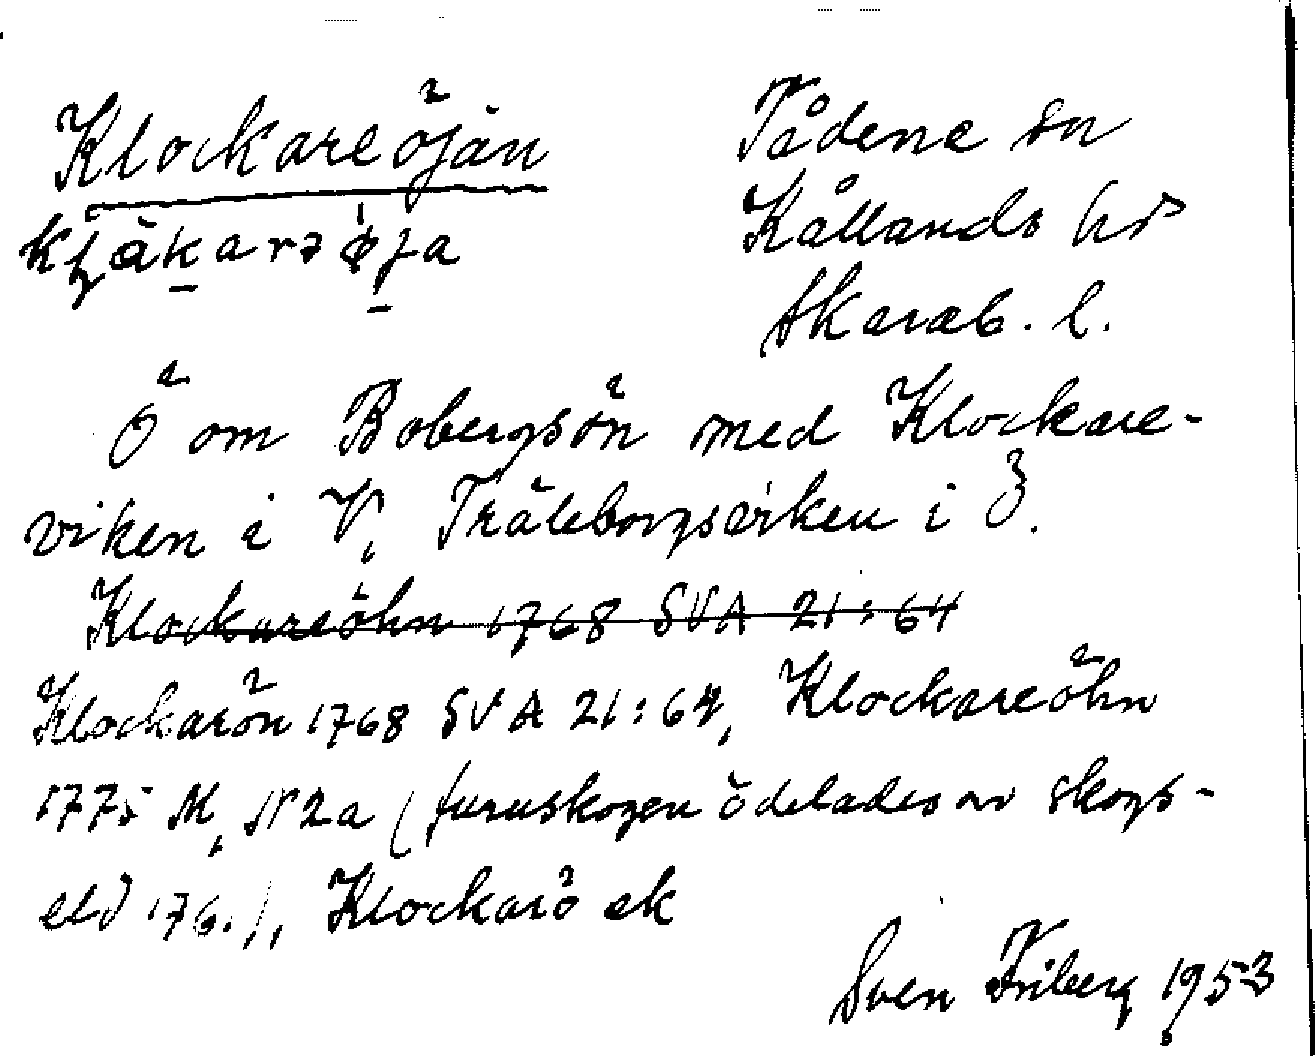 Klockareöjän
Tådene sn
Kållands hd
Skarab. l.
Ö om Bobergsön med Klockare-
viken i V, Träleborgsviken i Ö.
Klockareöhn 1768 SVA 21:64
Klockarön 1768 SVA 21:64, Klockareöhn
1775 M, N 2a (furuskogen ödelades av skogs-
eld 176.), Klockarö ek
Sven Friberg 1953